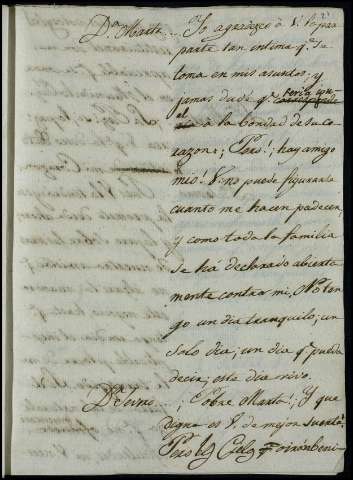 Dª Marta... Yo agradezco à V. la
parte tan intima q.e
toma en mis asuntos; y
jamas dudé q.e
el à la bondad de su co-
razon; Pero!; hay amigo
mio! V. no puede figurarse
cuanto me hacen padecer,
y como toda la familia
se há declarado abierta
mente contra mi. No ten
go un dia tranquilo; un
solo dia; un dia q.e pueda
decir; este dia vivo.
Dn Severo... Pobre Marta!; Y que
digna es V. de mejor suerte!
Pero los Cielos oirán beni-